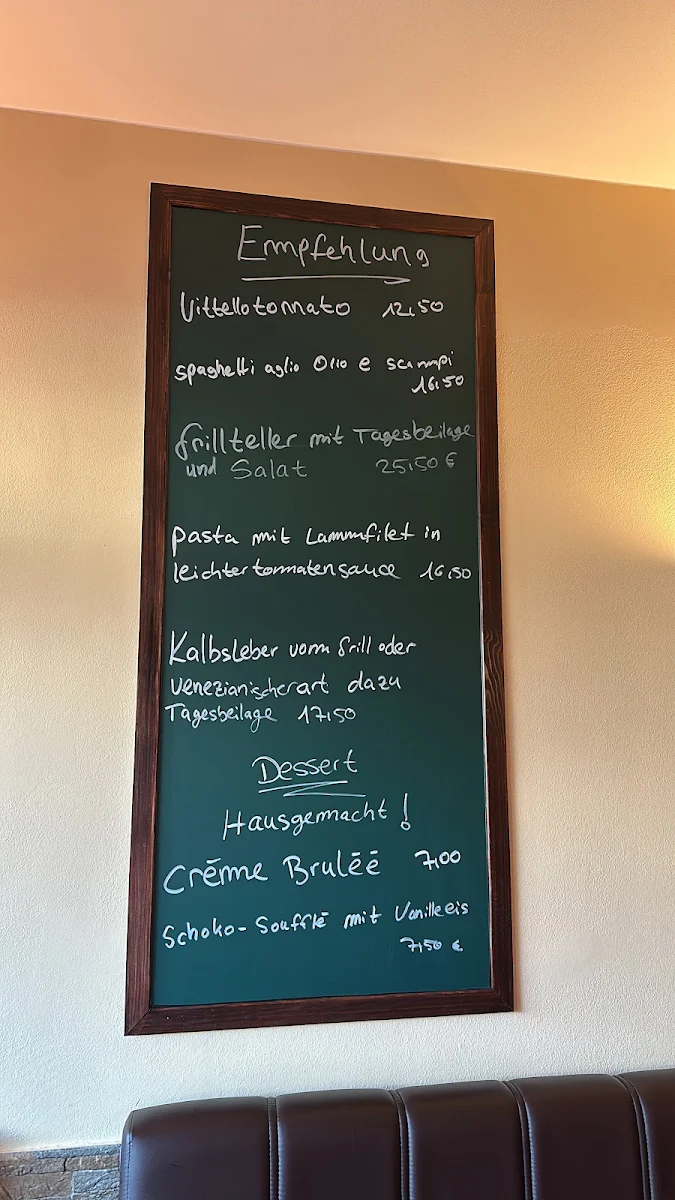 Empfehlung
Vittellotonnato 12,50
spaghetti aglio Olio e scampi
16,50
Grillteller mit Tagesbeilage
und Salat 25,50 €
pasta mit Lammfilet in
leichter tomatensauce 16,50
Kalbsleber vom Grill oder
venezianischerart dazu
Tagesbeilage 17,50
Dessert
Hausgemacht!
Créme Bruléé 7,00
Schoko-Soufflé mit Vanilleeis
7,50 €